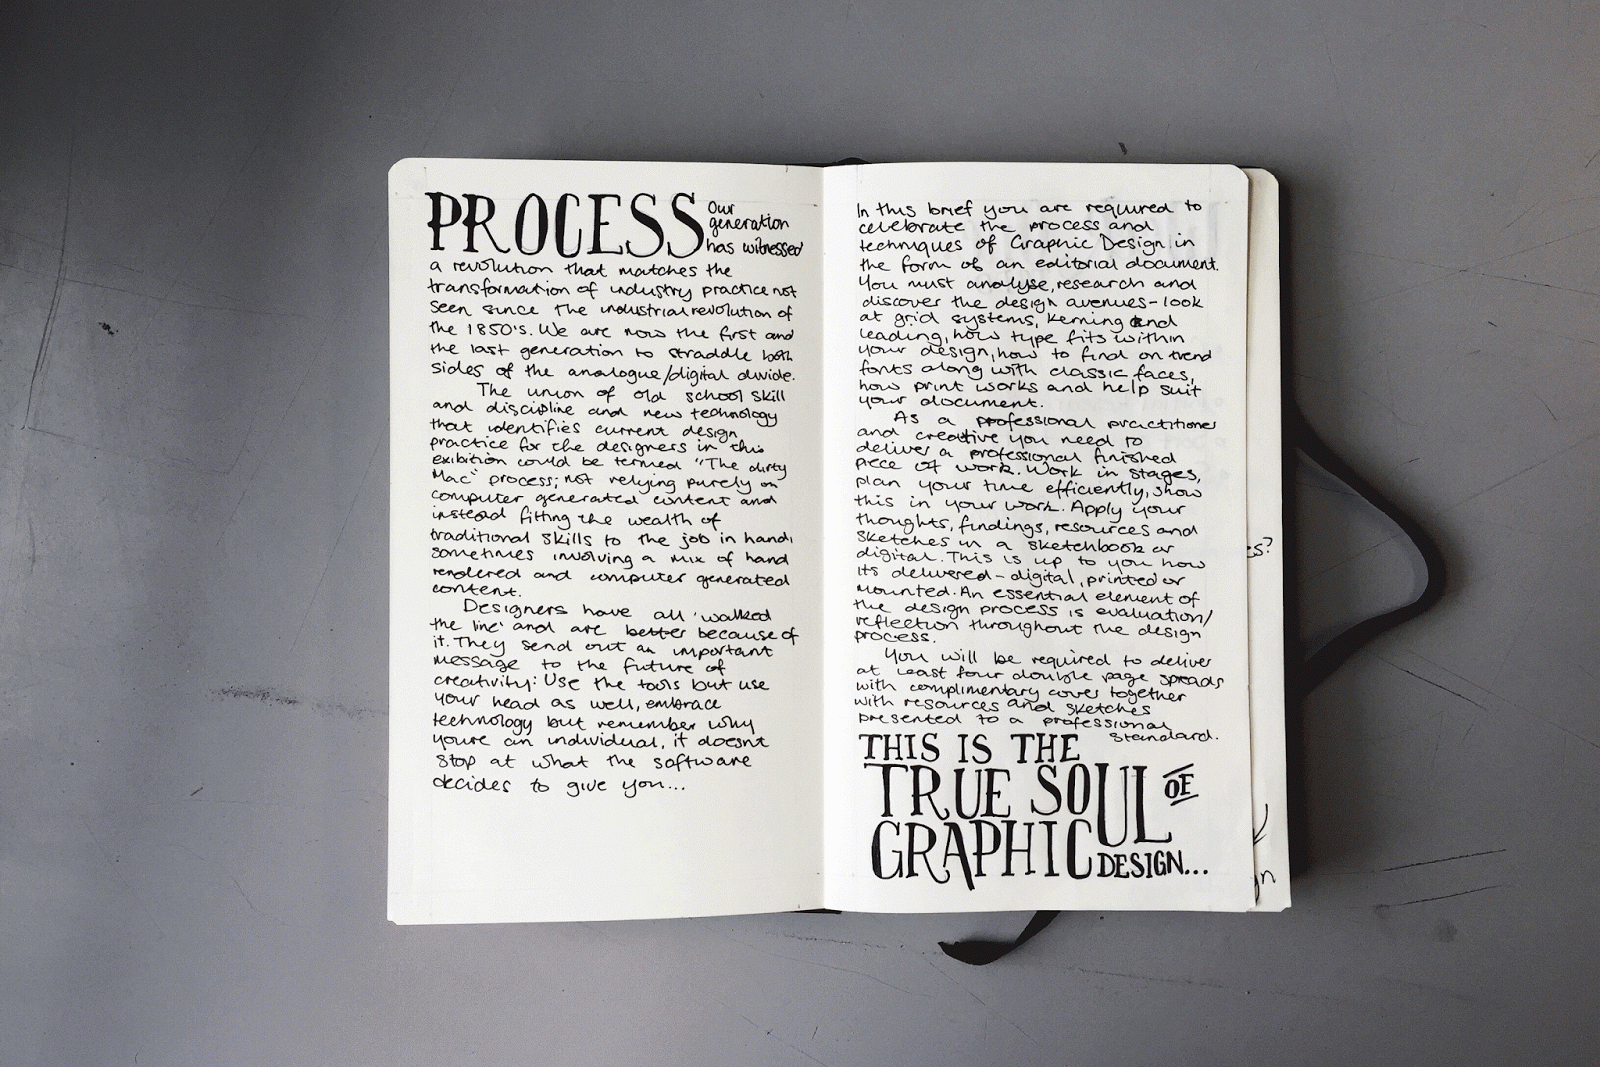 PROCESS Our
generation
has witnessed
a revolution that matches the
transformation of industry practice not
seen since the industrial revolution of
the 1850's. We are now the first and
the last generation to straddle both
sides of the analogue/digital divide.
The union of old school skill
and discipline and new technology
that identifies current design
practice for the designers in this
exibition could be termed "The dirty
Mac" process; not relying purely on
computer generated content and
instead fitting the wealth of
traditional skills to the job in hand,
sometimes involving a mix of hand
rendered and computer generated
content.
Designers have all 'walked
the line' and are better because of
it. They send out an important
message to the future of
creativity: Use the tools but use
your head as well, embrace
technology but remember why
youre an individual, it doesnt
stop at what the software
decides to give you...
In this brief you are required to
celebrate the process and
techniques of Graphic Design in
the form of an editorial document.
You must analyse, research and
discover the design avenues - look
at grid systems, kerning and
leading, how type fits within
your design, how to find on trend
fonts along with classic faces,
how print works and help suit
your document.
As a professional practitioner
and creative you need to
deliver a professional finished
piece of work. Work in stages,
plan your time efficiently, show
this in your work. Apply your
thoughts, findings, resources and
sketches in a sketchbook or
digital. This is up to you how
its delivered - digital, printed or
mounted. An essential element of
the design process is evaluation/
reflection throughout the design
process.
You will be required to deliver
at least four double page spreads
with complimentary cover together
with resources and sketches
presented to a professional
standard.
THIS IS THE
TRUE SOUL OF
GRAPHIC DESIGN...